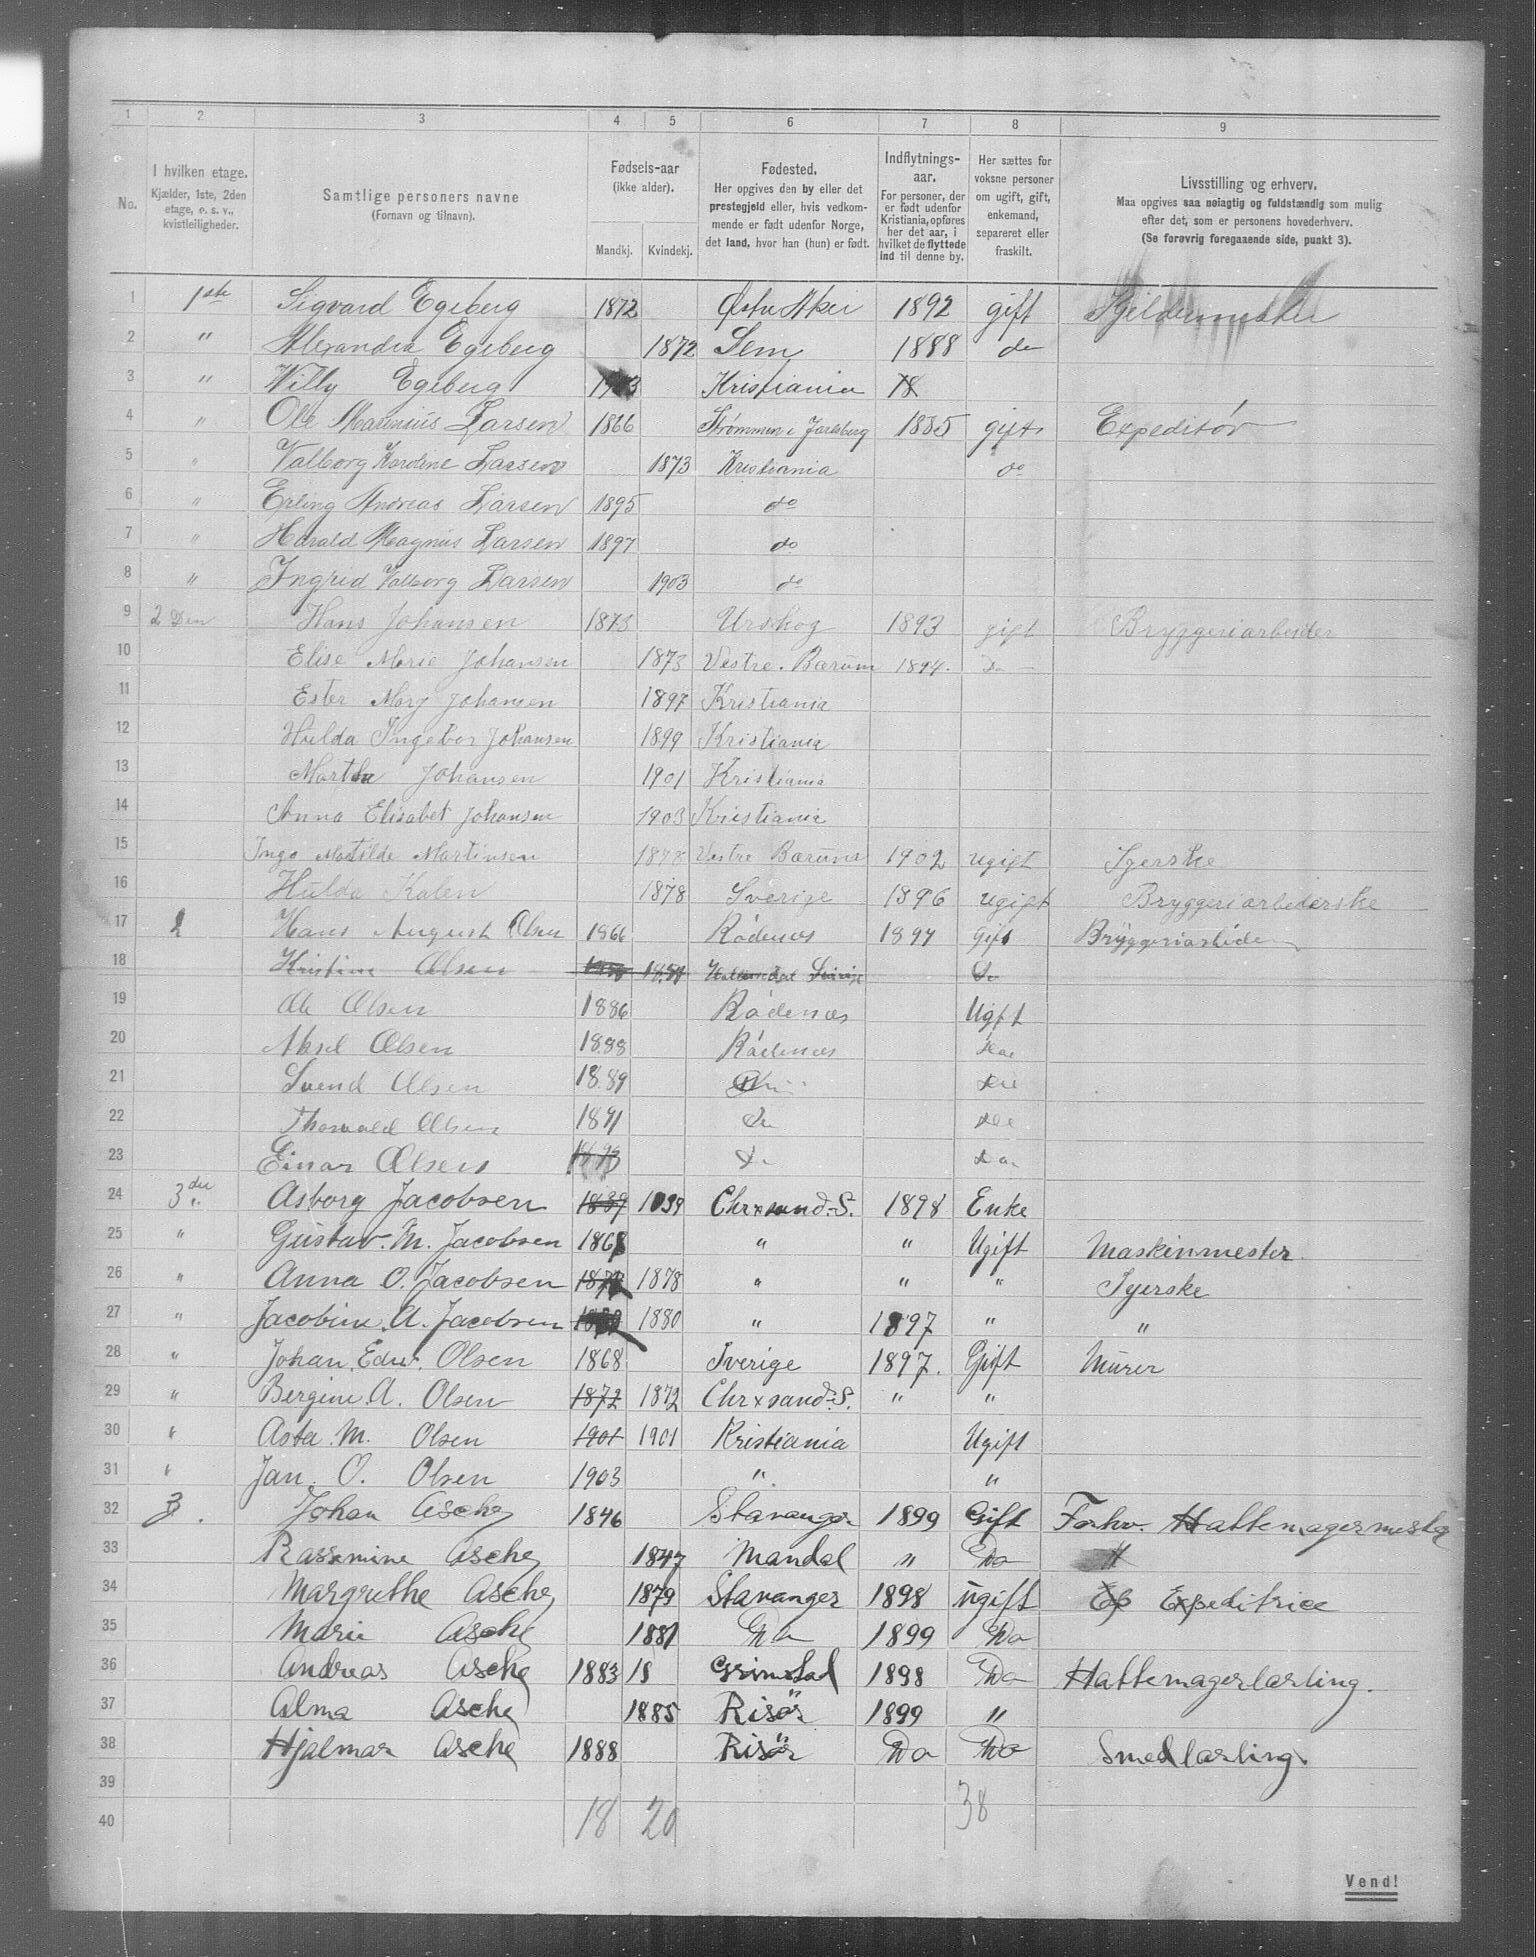 1 2 3 4 5 6 7 8 9
No.
I hvilken etage.
Kjælder, 1ste, 2den
etage, o. s. v.,
kvistleiligheder.
Samtlige personers navne
(Fornavn og tilnavn).
Fødsels-aar
(ikke alder).
Mandkj. Kvindekj.
Fødested.
Her opgives den by eller det
prestegjeld eller, hvis vedkom-
mende er født udenfor Norge,
det land, hvor han (hun) er født.
Indflytnings-
aar.
For personer, der
er født udenfor
Kristiania, opføres
her det aar, i
hvilket de flyttede
ind til denne by.
Her sættes for
voksne personer
om ugift, gift,
enkemand,
separeret eller
fraskilt.
Livsstilling og erhverv.
Maa opgives saa nøiagtig og fuldstændig som mulig
efter det, som er personens hovederhverv.
(Se forøvrig foregaaende side, punkt 3).
1 1ste Sigvard Egeberg 1872 Østre Aker 1892 gift
2 " Alexandra Egeberg 1872 Sem 1888 do
3 " Willy Egeberg Kristiania 18
4 " Ole Marinius Larsen 1866 Strømmen i Jarlsberg 1885 gift Expeditør
5 " Valborg Karoline Larsen 1873 Kristiania do
6 " Erling Andreas Larsen 1895 do
7 " Harald Magnus Larsen 1897 do
8 " Ingrid Valborg Larsen 1903 do
9 2 Den Hans Johansen 1873 Urskog 1893 gift Bryggeriarbeider
10 Elise Marie Johansen 1873 Vestre. Bærum 1894. Do
11 Ester Mary Johansen 1897 Kristiania
12 Hulda Ingebor Johansen 1899 Kristiania
13 Martha Johansen 1901 Kristiania
14 Anna Elisabet Johansen 1903 Kristiania
15 Inga Matilde Martinsen 1878 Vestre Bærums 1902 ugift Syerske
16 Hulda Kalen 1878 Sverige 1896 ugift Bryggeriarbeiderske
17 2 Hans August Olsen 1866 Rødenæs 1897 Gift Bryggeriarbeide
18 Kristine Olsen Sverige Do
19 Ole Olsen 1886 Rødenæs Ugift
20 Aksel Olsen 1888 Rødenæs
21 Svend Olsen 1889
22 Thorvald Olsen 1891 Do
23 Einar Olsen 1893 Do Do
24 3die Asborg Jacobsen 1839 1839 Chrxsand.S. 1898 Enke
25 " Gustav. M. Jacobsen 1868 " " Ugift Maskinmester
26 " Anna O. Jacobsen 1878 1878 " " " Syerske
27 " Jacobine. A. Jacobsen 1880 " 1897 " "
28 " Johan. Edw. Olsen 1868 Sverige 1897. Gift Murer
29 " Bergine. A. Olsen 1872 1872 Chrxsand.S. " "
30 " Asta. M. Olsen 1901 1901 Kristiania Ugift
31 " Jan. O. Olsen 1903 " "
32 3. Johan Asche 1846 Stavanger 1899 Gift Forhv. Hattemagermester
33 Rassmine Asche 1847 Mandal " Do "
34 Margrethe Asche 1879 Stavanger 1898 ugift Exp Expeditrice
35 Marie Asche 1881 Do 1899 Do
36 Andreas Asche 1883 18 Grimstad 1898 Do Hattemagerlærling.
37 Alma Asche 1885 Risør 1899 "
38 Hjalmar Asche 1888 Risør Do Do Smedlærling.
39
40 18 20 38
Vend!